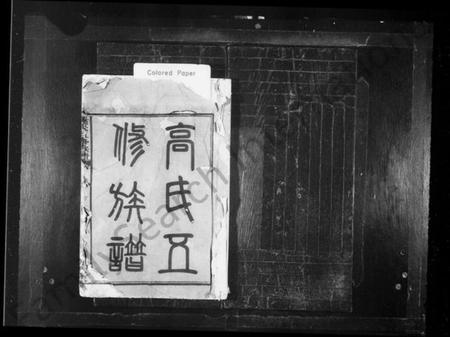 Colored Paper
高氏五
修族譜